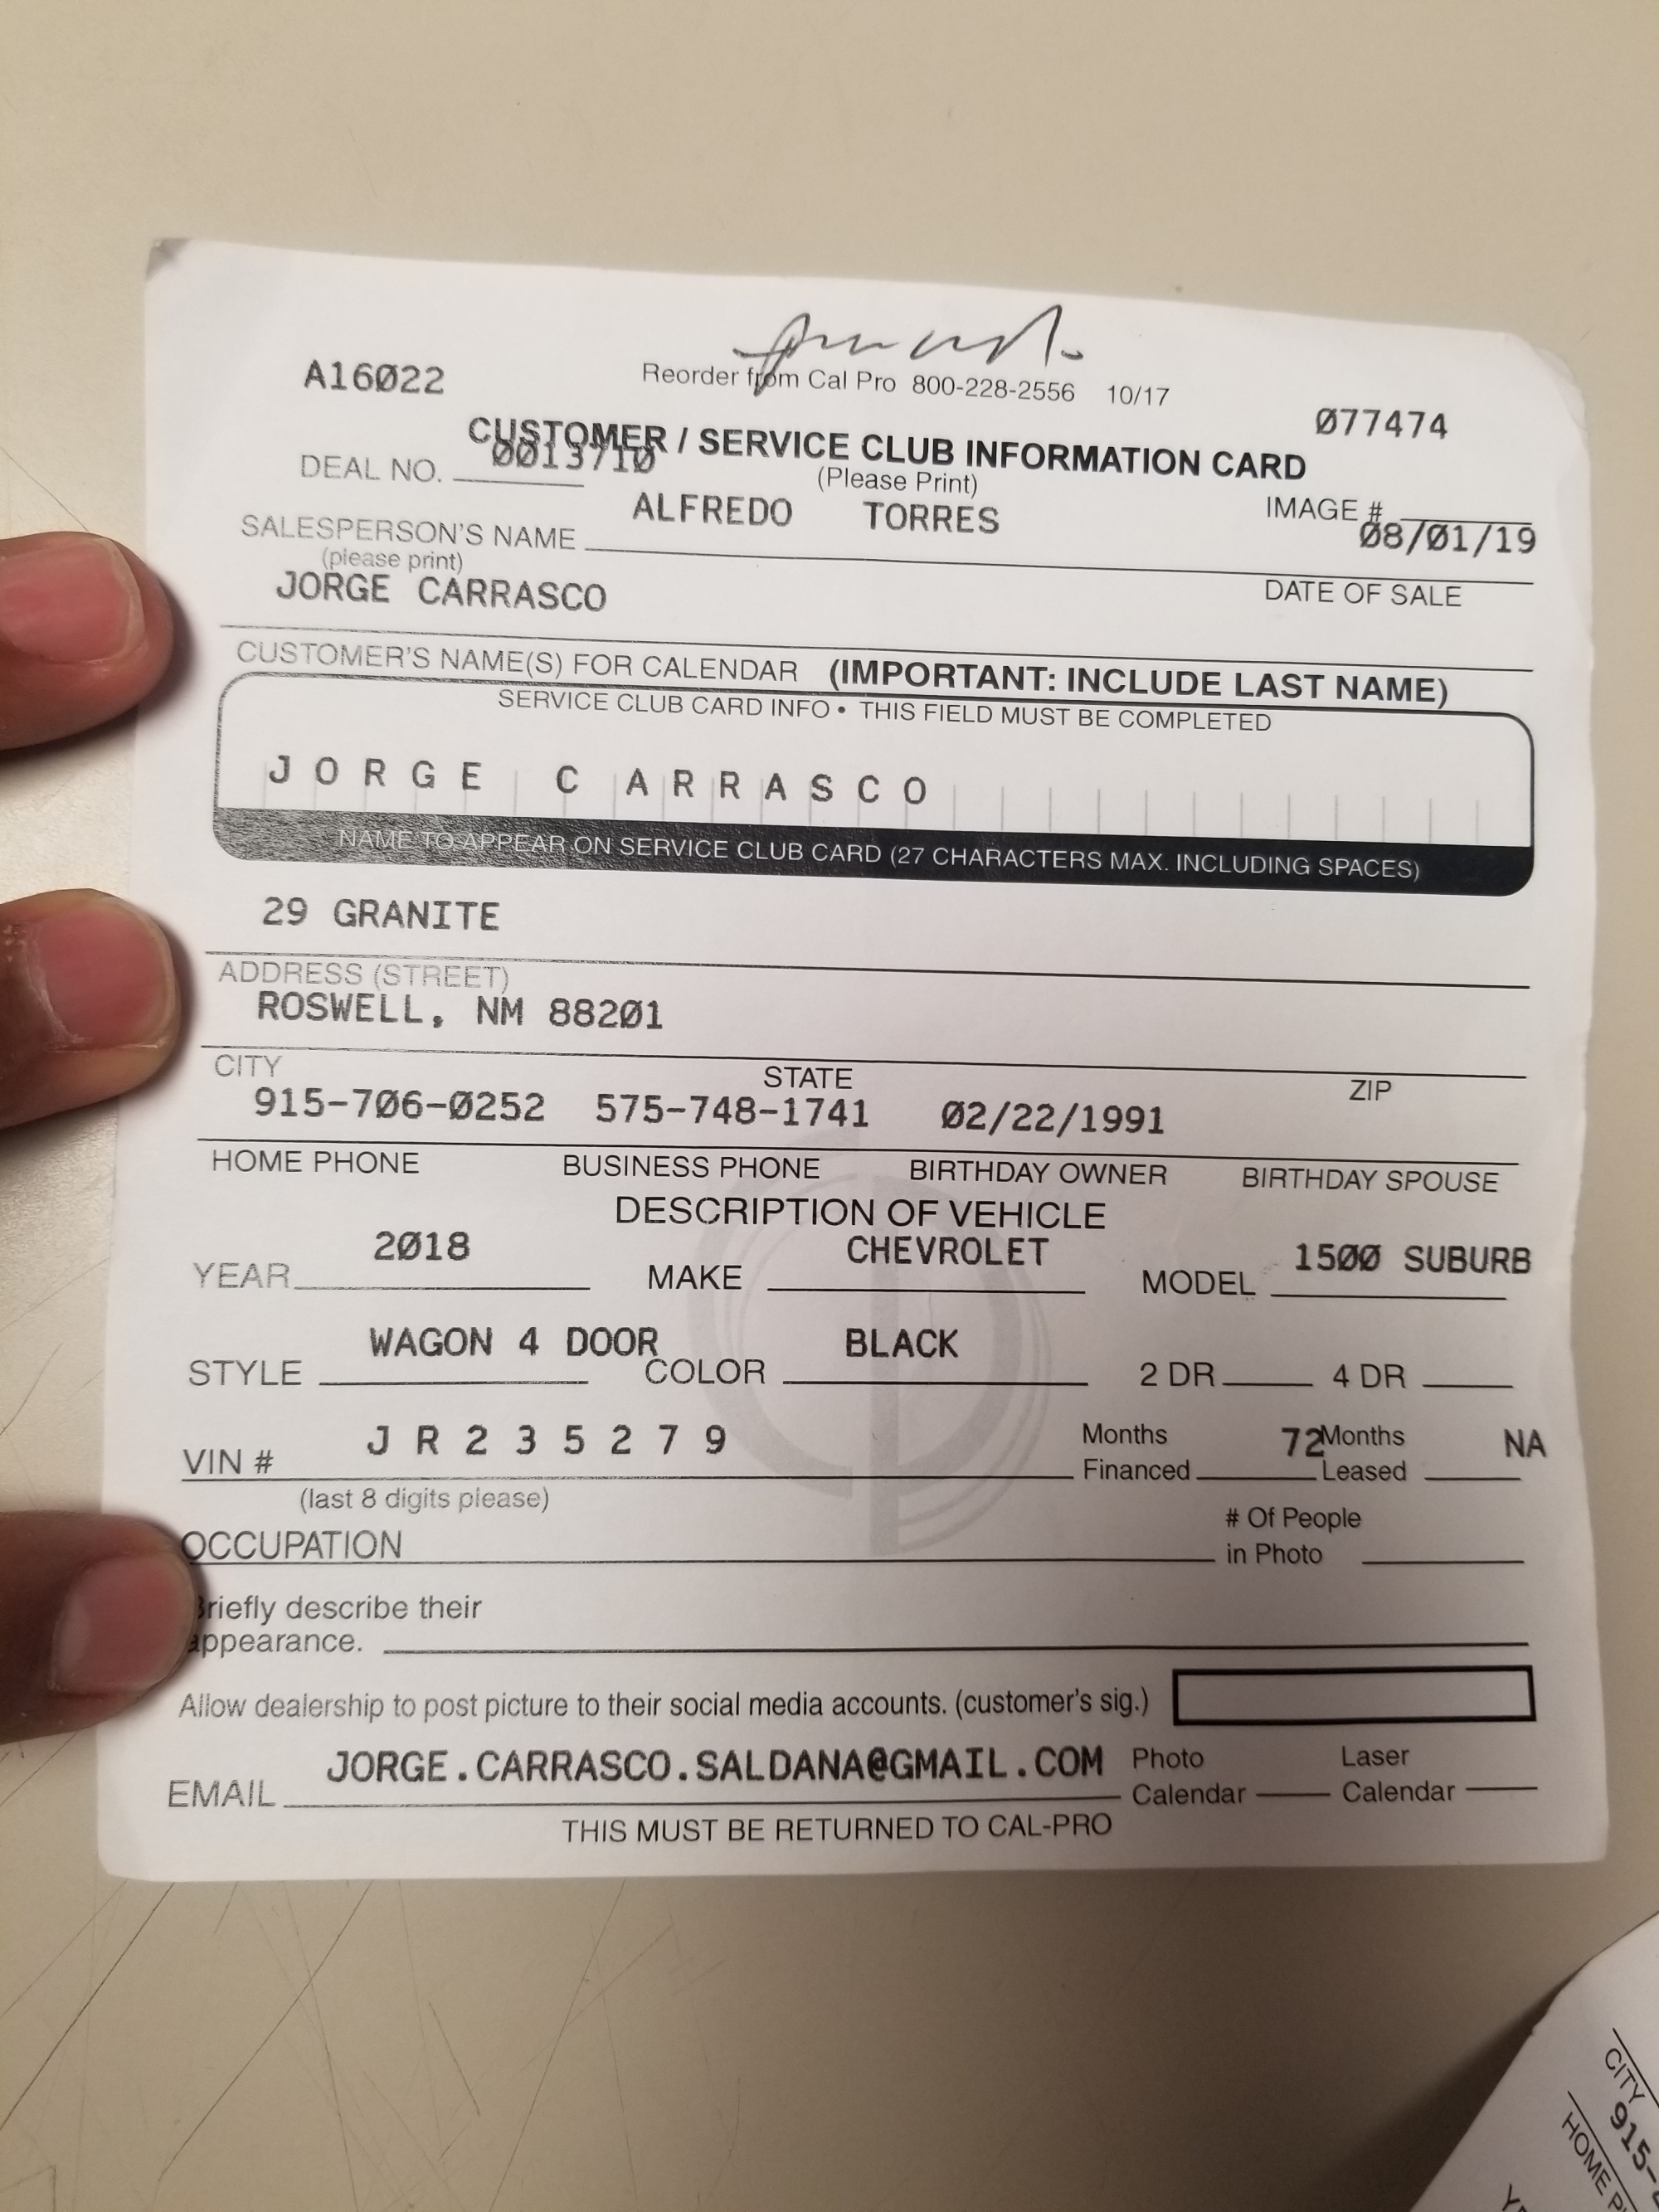 A16022
Reorder from Cal Pro 800-228-2556 10/17
077474
CUSTOMER / SERVICE CLUB INFORMATION CARD
DEAL NO. 0013710
(Please Print)
IMAGE #
SALESPERSON'S NAME ALFREDO TORRES 08/01/19
(please print)
DATE OF SALE
JORGE CARRASCO
CUSTOMER'S NAME(S) FOR CALENDAR (IMPORTANT: INCLUDE LAST NAME)
SERVICE CLUB CARD INFO • THIS FIELD MUST BE COMPLETED
JORGE CARRASCO
NAME TO APPEAR ON SERVICE CLUB CARD (27 CHARACTERS MAX. INCLUDING SPACES)
29 GRANITE
ADDRESS (STREET)
ROSWELL, NM 88201
CITY STATE ZIP
915-706-0252 575-748-1741 02/22/1991
HOME PHONE BUSINESS PHONE BIRTHDAY OWNER BIRTHDAY SPOUSE
DESCRIPTION OF VEHICLE
YEAR 2018 MAKE CHEVROLET MODEL 1500 SUBURB
STYLE WAGON 4 DOOR COLOR BLACK 2 DR 4 DR
VIN # JR235279 Months Financed 72 Months Leased NA
(last 8 digits please)
OCCUPATION # Of People in Photo
Briefly describe their
appearance.
Allow dealership to post picture to their social media accounts. (customer's sig.)
EMAIL JORGE.CARRASCO.SALDANA@GMAIL.COM Photo Calendar Laser Calendar
THIS MUST BE RETURNED TO CAL-PRO
CITY
915-